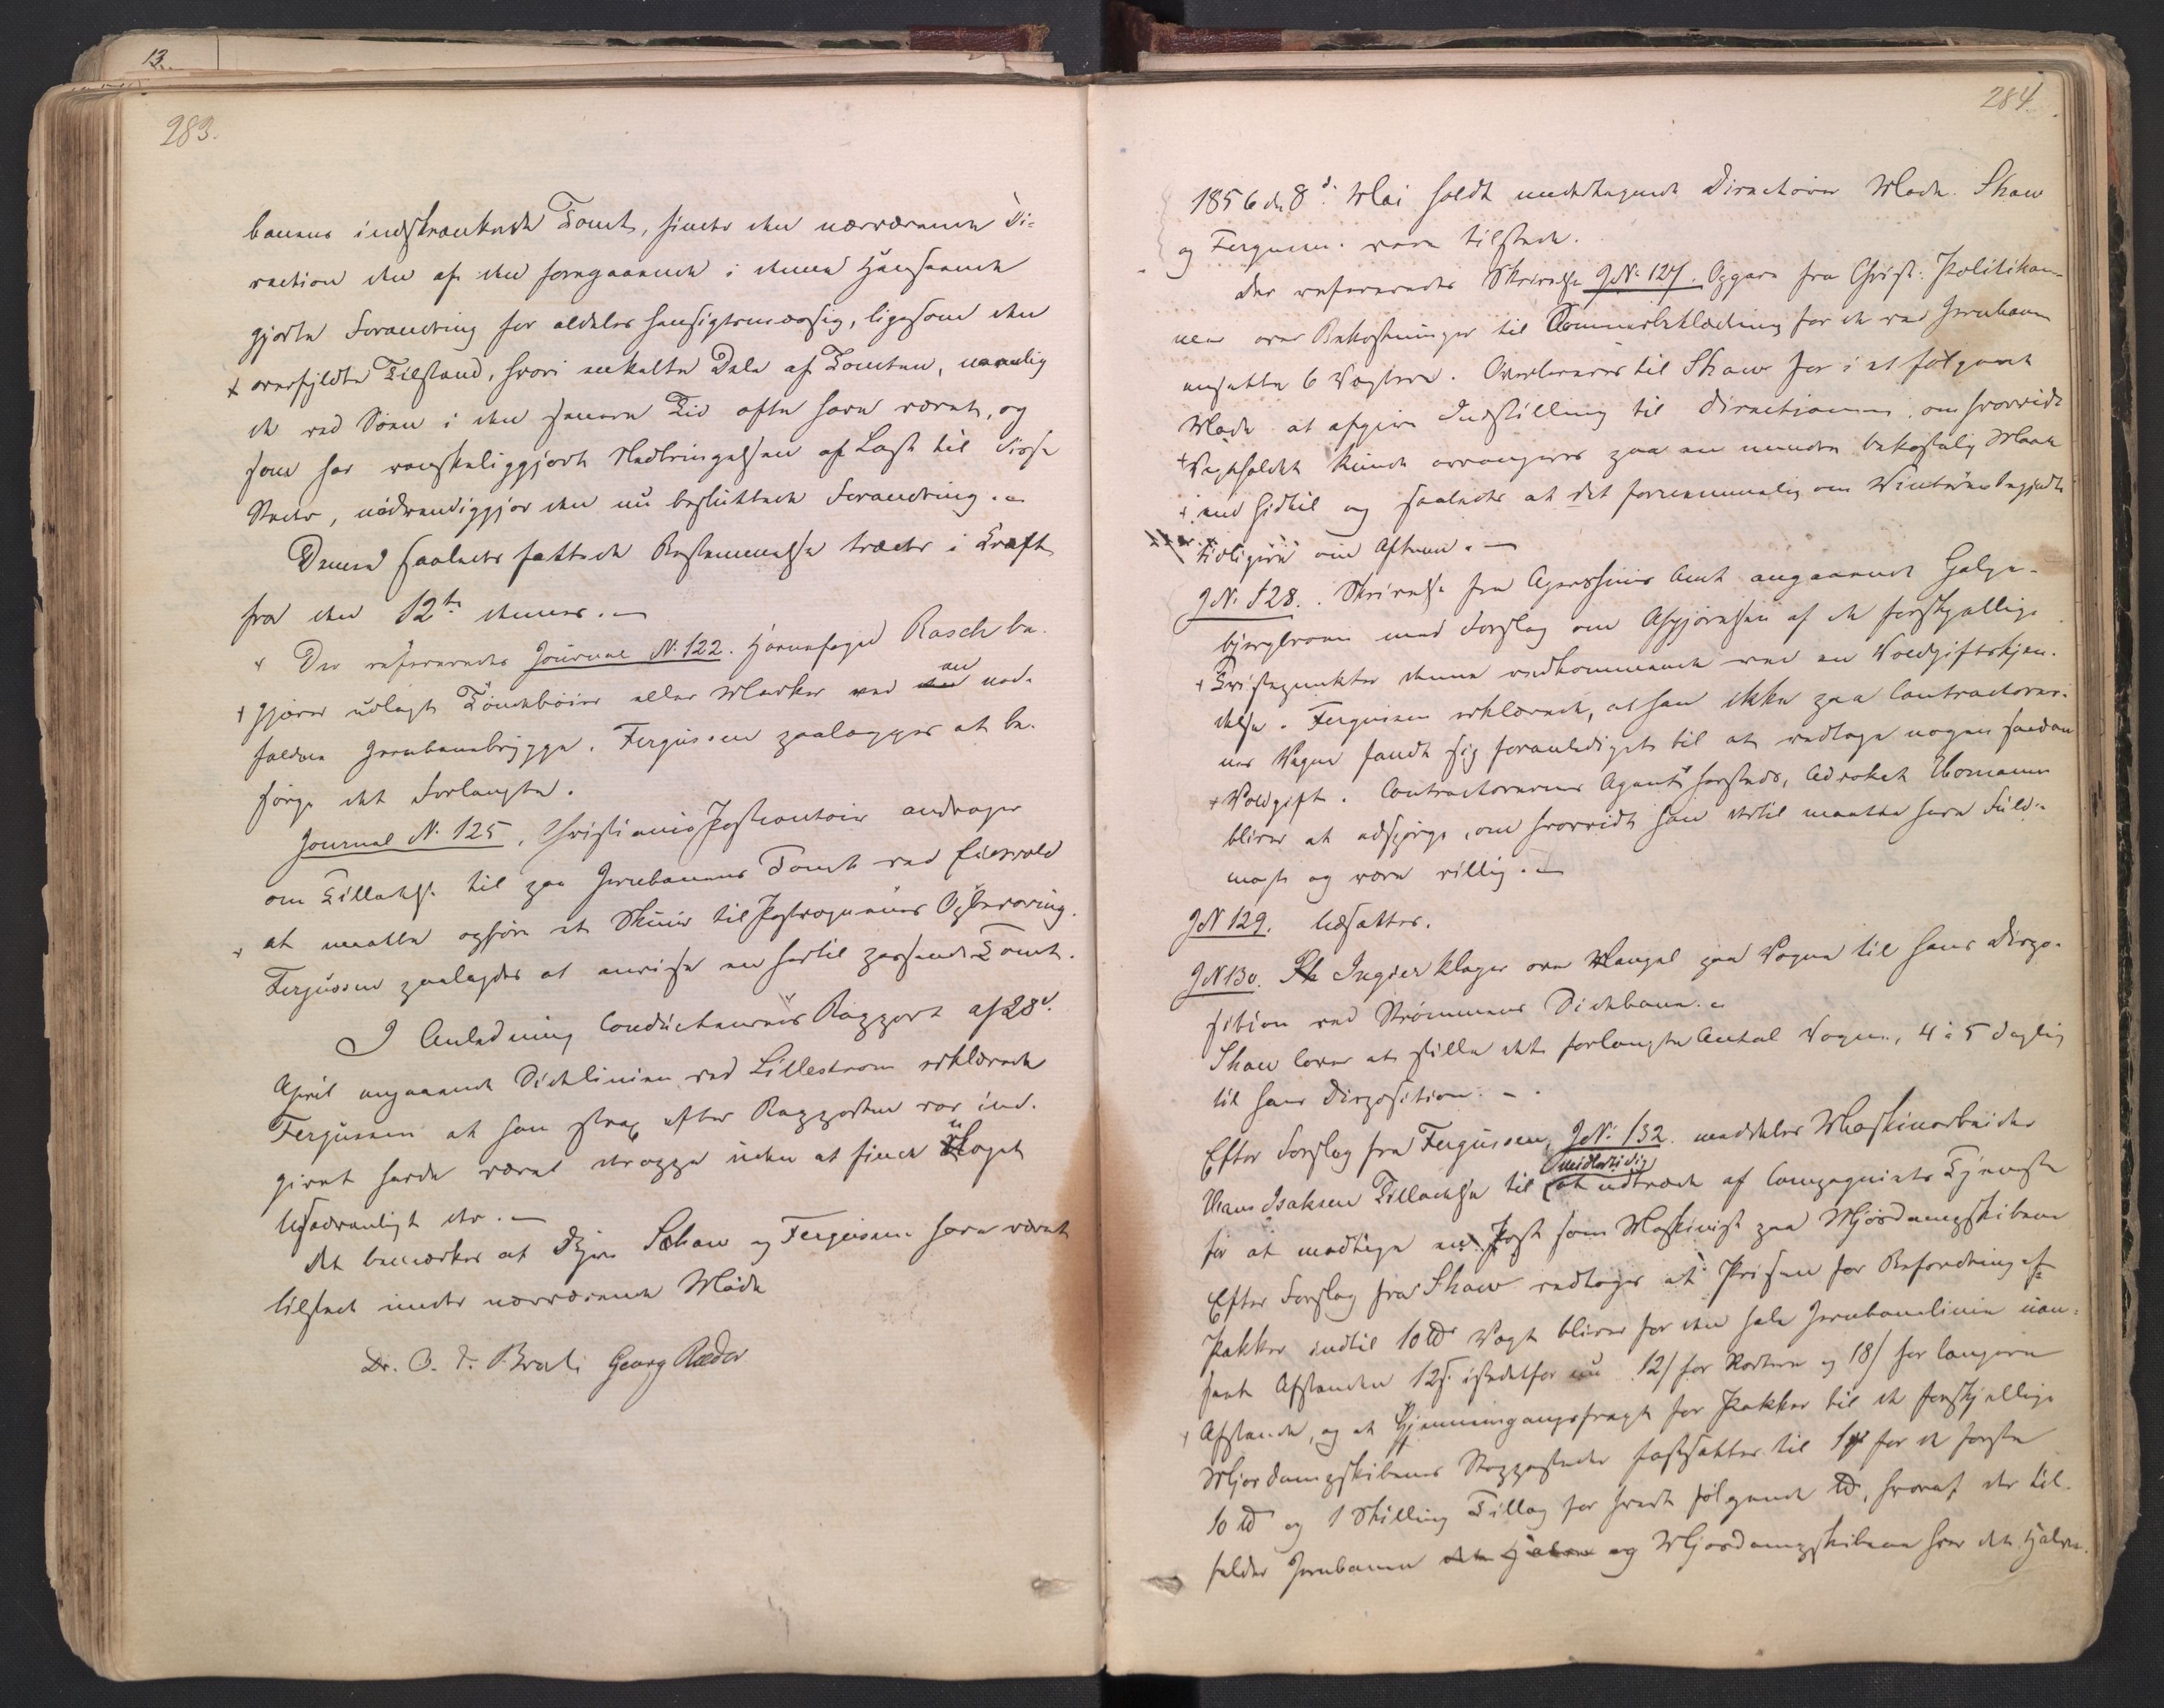 13.
283.
banens indskrænkede Tomt, finder den nærværende Di-
rection den af den foregaaende i denne Henseende
gjorte Forandring for aldeles hensigtsmæssig, ligesom den
overfyldte Tilstand, hvori enkelte Dele af Tomten, navnlig
de ved Søen i den senere Tid ofte have været, og
som har vanskeliggjort Nedbringelsen af Last til disse
Steder, nødvendiggjør den nu besluttede Forandring.
Denne saaledes fattede Bestemmelse træder i Kraft
fra den 12te dennes.
Der refereredes Journal N. 122. Havnefoged Rasch be-
gjærer udlagt Tøndebøier eller Mærker ved en ned-
falden Jernbanebrygge. Fergusson paalægges at be-
sørge det Forlangte.
Journal N. 125, Christiania Postcontoir andrager
om Tilladelse til paa Jernbanens Tomt ved Eidsvold
at maatte opføre et Skuur til Postvognenes Opbevaring.
Fergusson paalagdes at anvise en hertil passende Tomt.
I Anledning Conducteurens Rapport af 28d.
April angaaende Sidelinien ved Lillestrøm erklærede
Fergusson at han strax efter Rapporten var ind-
givet havde været deroppe uden at finde Noget
Usædvanligt der.
Det bemærkes at DHrr. Schaw og Fergusson have været
tilstede under nærværende Møde
Dr. O. J. Broch Georg Ræder
284.
1856 den 8d. Mai holdt undertegnede Directører Møde. Shaw
og Fergusson vare tilstede.
Der refereredes Skrivelse JN: 127. Opgave fra Christ: Politikam-
mer over Bekostninger til Sommerbeklædning for de ved Jernbanen
ansatte 6 Vægtere. Overleveres til Shaw for i et følgende
Møde at afgive Indstilling til Directionen, om hvorvidt
Vagtholdet kunde arrangeres paa en mindre bekostelig Maade
end hidtil og saaledes at det fornemmelig om Vinteren begyndte
tidligere om Aftenen.
JN. 128. Skrivelse fra Agershuus Amt angaaende Galge-
bjergbroen med Forslag om Afgjørelsen af de forskjellige
Tvistepunkter denne vedkommende ved en Voldgiftskjen-
delse. Fergusson erklærede, at han ikke paa Contractorer-
nes Vegne fandt sig foranlediget til at vedtage nogen saadan
Voldgift. Contractorernes Agent hersteds, Advokat Homann
bliver at adspørge, om hvorvidt han dertil maatte have Fuld-
magt og være villig.
JN 129. Udsættes.
JN 130. Ingier klager over Mangel paa Vogne til hans Dispo-
sition ved Strømmens Sidebane.
Shaw lover at stille det forlangte Antal Vogne, 4 à 5 daglig
til hans Disposition.
Efter Forslag fra Fergusson, JN: 132. meddeles Maskinarbeider
Hans Isaksen Tilladelse til midlertidig at udtræde af Compagniets Tjeneste
for at modtage en Post som Maskinist paa Mjøsdampskibene
Efter Forslag fra Shaw vedtages at Prisen for Befordring af
Pakker indtil 10 ℔ Vægt bliver for den hele Jernbanelinie uan-
seet Afstanden 12ẞ. istedetfor nu 12ẞ for kortere og 18ẞ for længere
Afstande, og at Gjennemgangsfragt for Pakker til de forskjellige
Mjøsdampskibenes Stoppesteder fastsættes til for de første
10 ℔ og 1 Skilling Tillæg for hvert følgende ℔, hvoraf der til-
falder Jernbanen det Halve og Mjøsdampskibene hver det Halve.